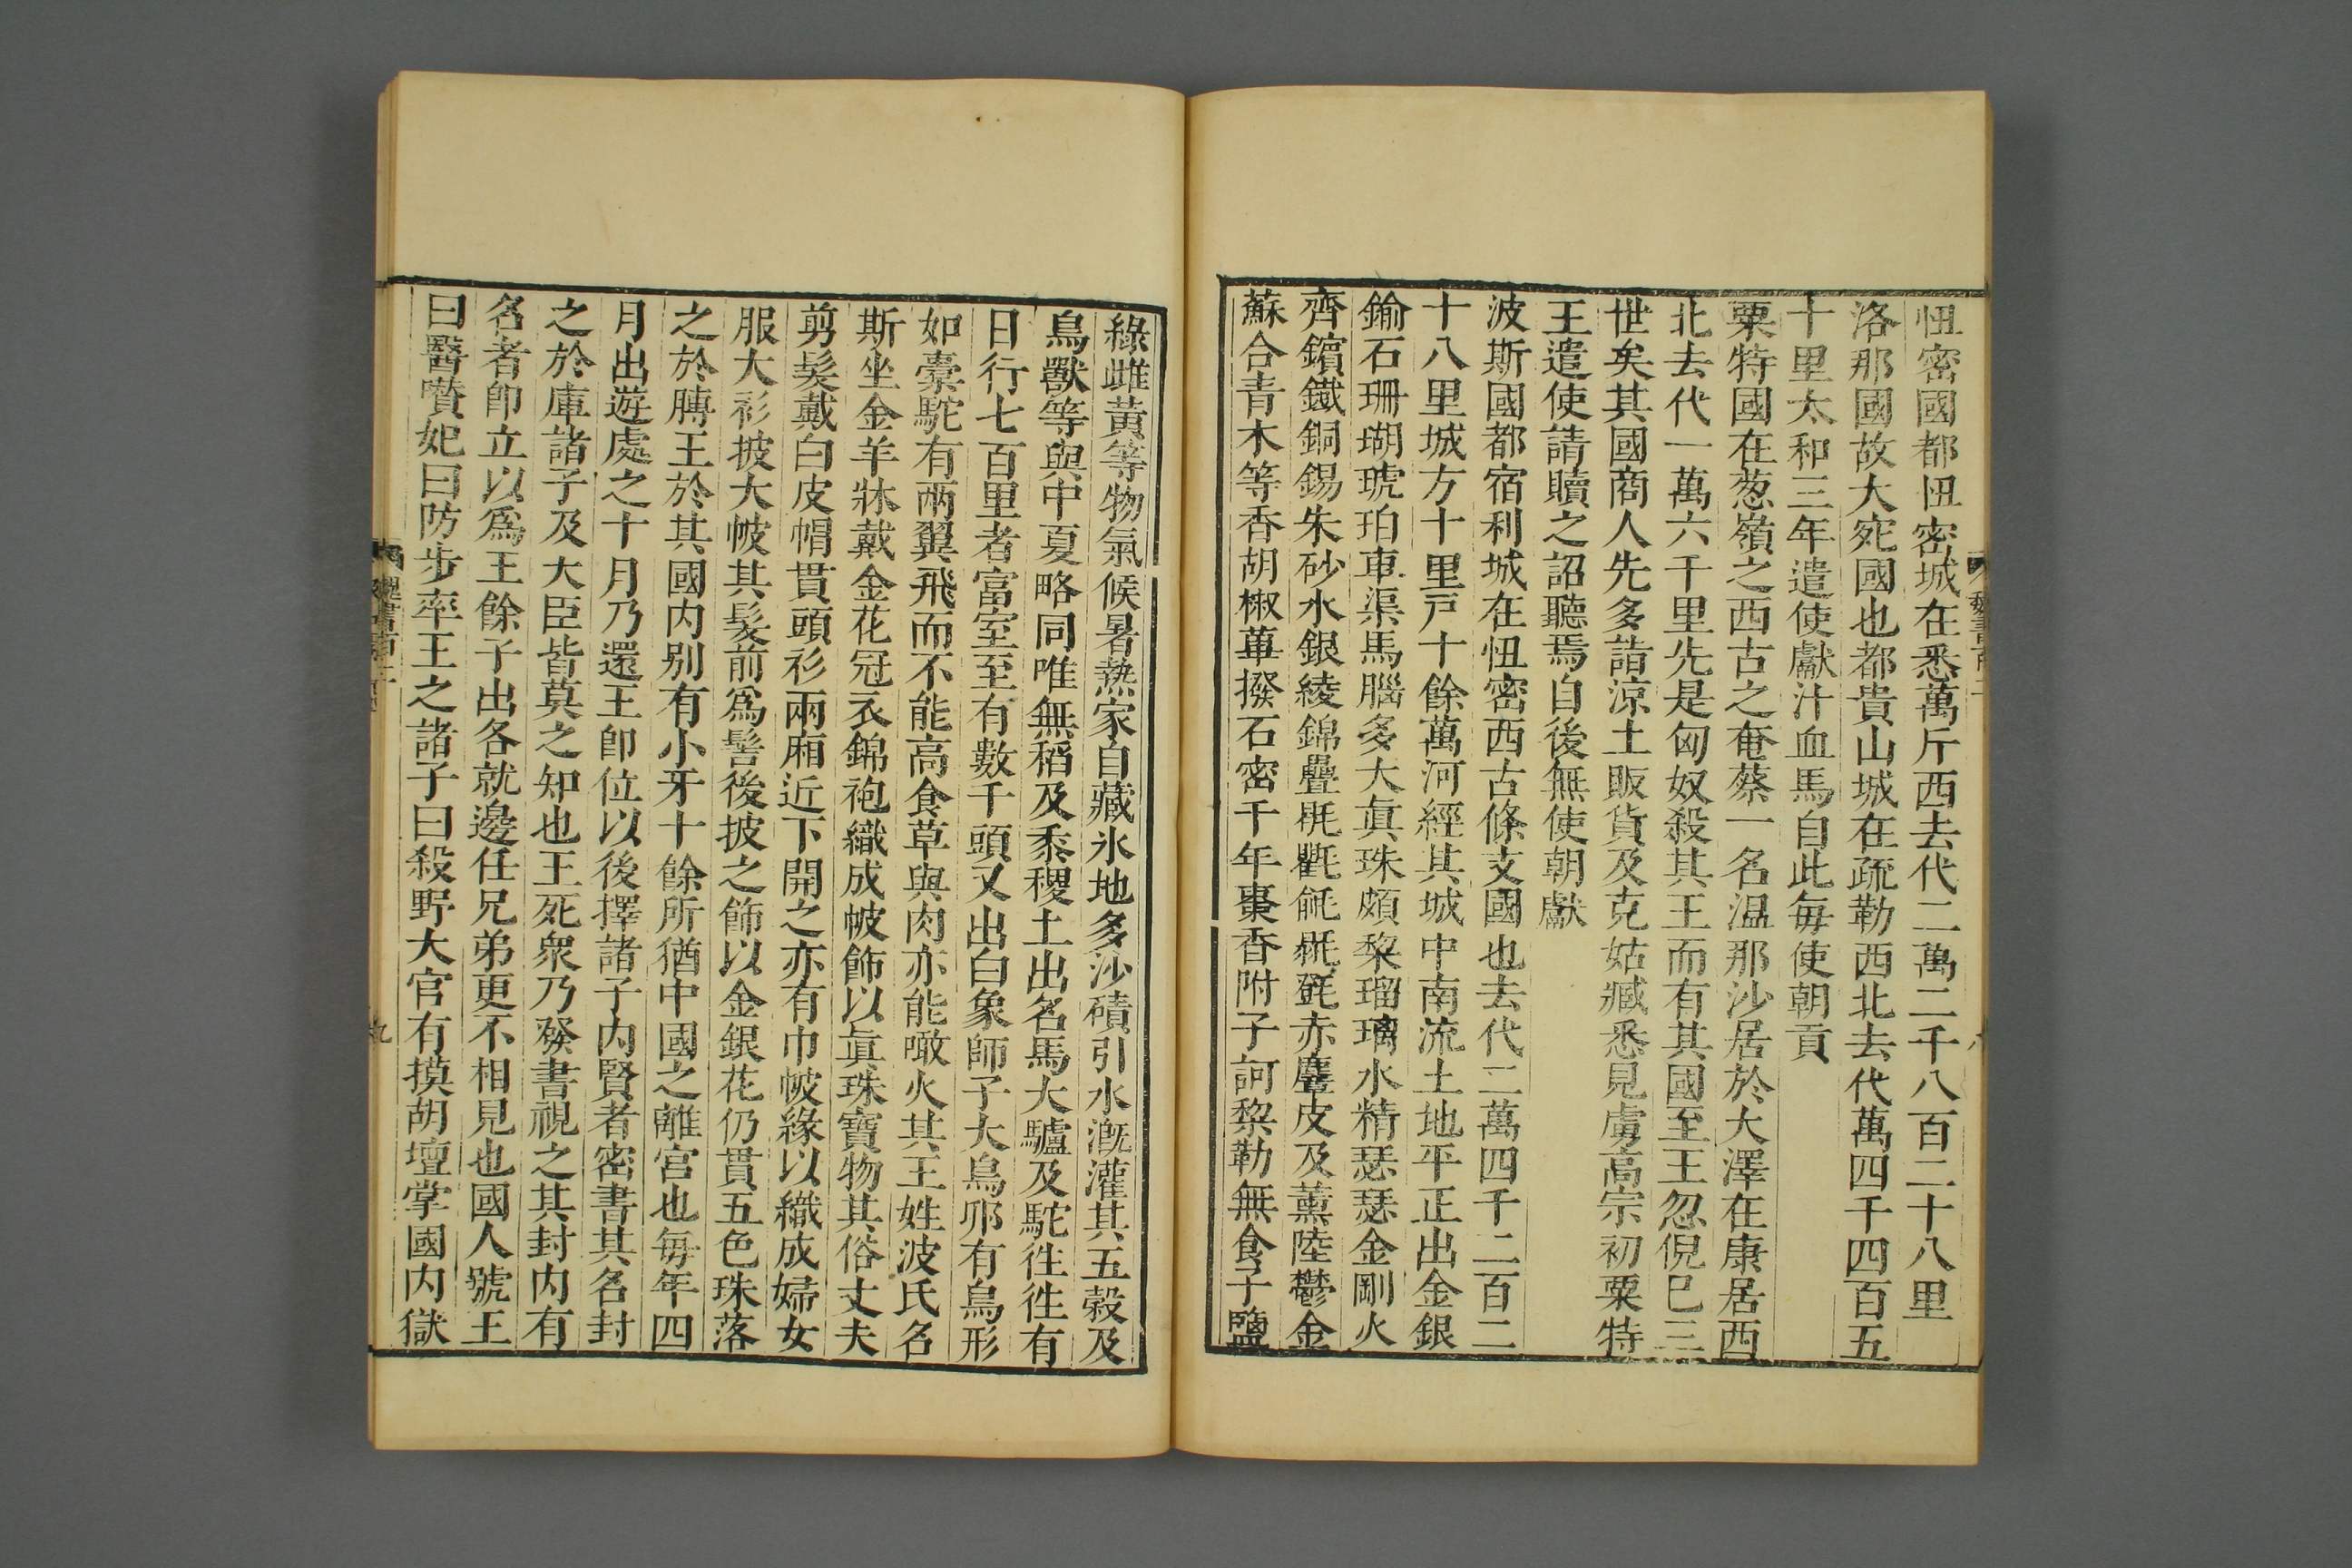 忸密國都忸密城在悉萬斤西去代二萬二千八百二十八里
洛那國故大宛國也都貴山城在疏勒西北去代萬四千四百五
十里太和三年遣使獻汁血馬自此每使朝貢
粟特國在葱嶺之西古之奄蔡一名温那沙居於大澤在康居西
北去代一萬六千里先是匈奴殺其王而有其國至王忽倪已三
世矣其國商人先多詣涼土販貨及克姑臧悉見虜高宗初粟特
王遣使請贖之詔聽焉自後無使朝獻
波斯國都宿利城在忸密西古條支國也去代二萬四千二百二
十八里城方十里戸十餘萬河經其城中南流土地平正出金銀
鍮石珊瑚琥珀車渠馬腦多大真珠頗黎瑠璃水精瑟瑟金剛火
齊鑌鐵銅錫朱砂水銀綾錦疊毼氍毹毾㲪赤麞皮及薰陸鬱金
蘇合青木等香胡椒蓽撥石密千年棗香附子訶黎勒無食子鹽
綠雌黃等物氣候暑熱家自藏氷地多沙磧引水漑灌其五榖及
鳥獸等與中夏略同唯無稻及黍稷土出名馬大驢及駝徃徃有
日行七百里者富室至有數千頭又出白象師子大鳥卵有鳥形
如橐駝有兩翼飛而不能高食草與肉亦能噉火其王姓波氏名
斯坐金羊牀戴金花冠衣錦袍織成帔飾以真珠寶物其俗丈夫
剪髮戴白皮帽貫頭衫兩廂近下開之亦有巾帔緣以織成婦女
服大衫披大帔其髮前爲髻後披之飾以金銀花仍貫五色珠落
之於膊王於其國内别有小牙十餘所猶中國之離宮也每年四
月出遊處之十月乃還王卽位以後擇諸子内賢者密書其名封
之於庫諸子及大臣皆莫之知也王死衆乃發書視之其封内有
名者卽立以爲王餘子出各就邊任兄弟更不相見也國人號王
曰醫囋妃曰防步率王之諸子曰殺野大官有摸胡壇掌國内獄
魏書百二
九